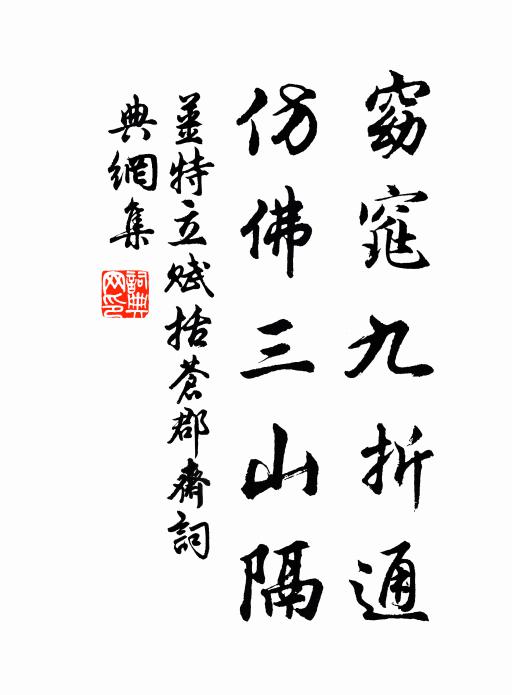 窈窕九折通
仿佛三山隔
姜特立赋括蒼郡齋詞
典網集
詞典網印